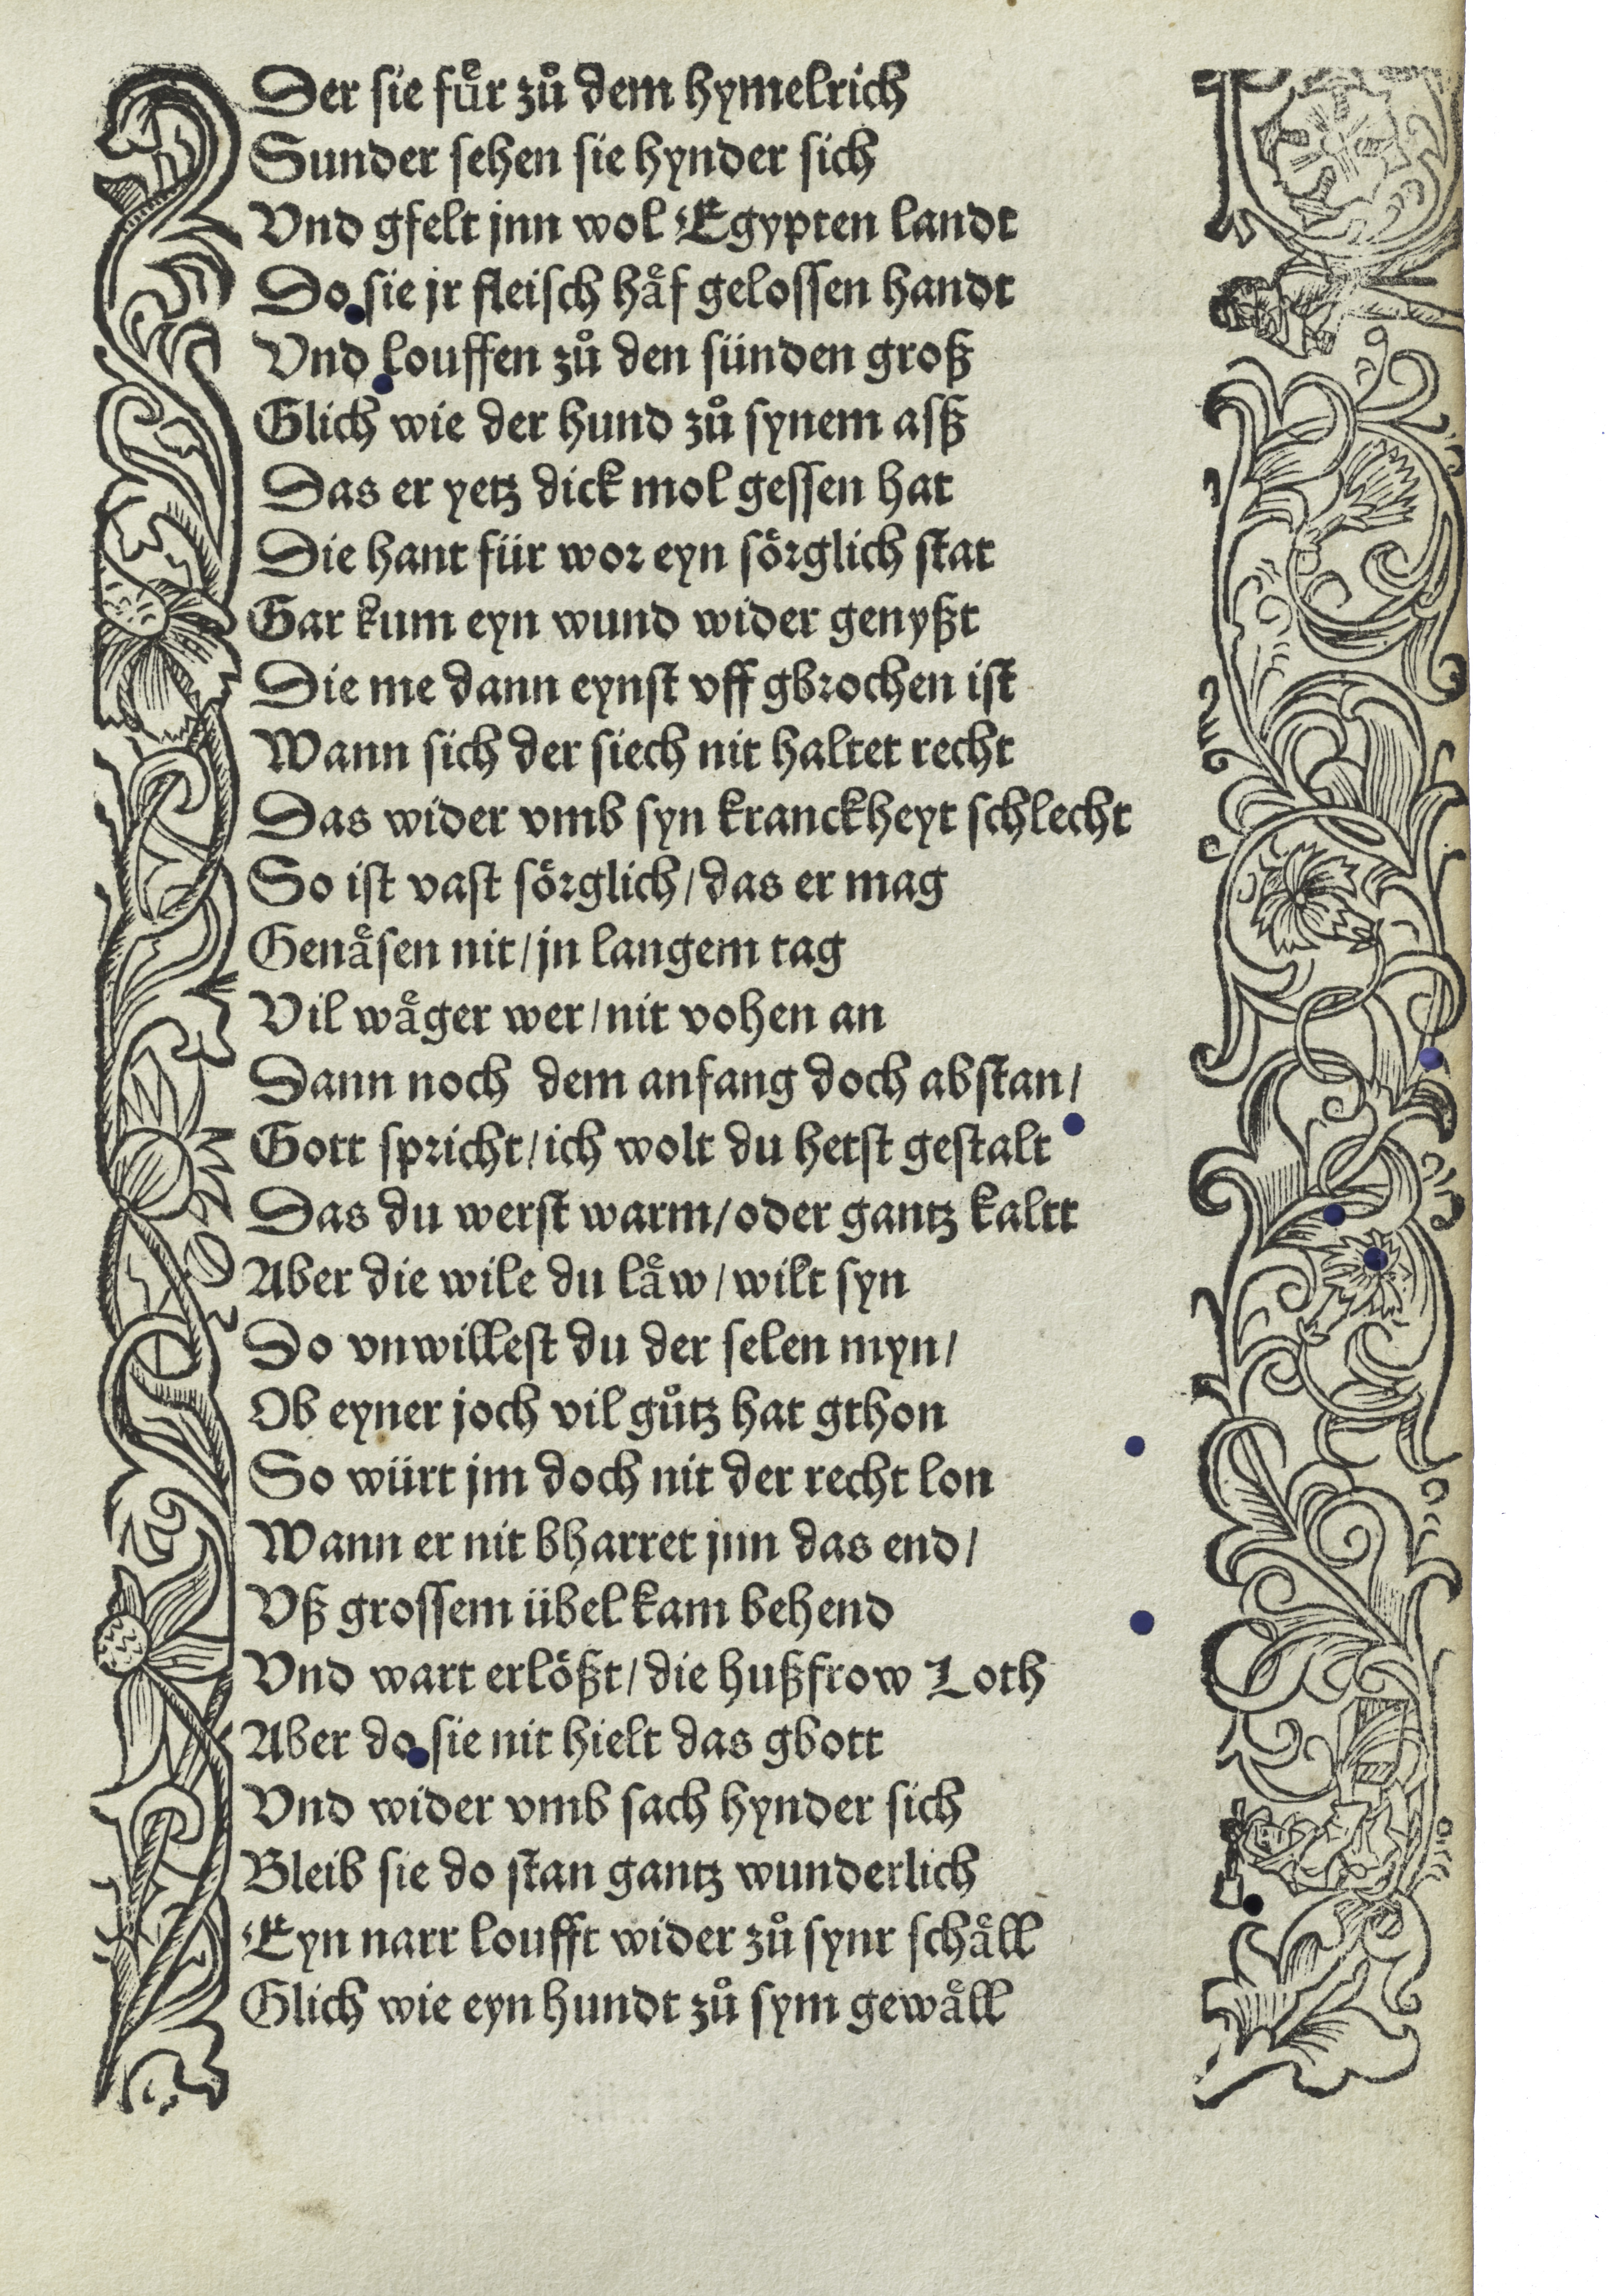 Der sie fuͤr zuͦ dem hymelrich
Sunder sehen sie hynder sich
Vnd gfelt jnn wol Egypten landt
Do sie jr fleisch haͤf gelossen handt
Vnd louffen zuͦ den sünden groß
Glich wie der hund zuͦ synem asß
Das er yetz dick mol gessen hat
Die hant für wor eyn soͤrglich stat
Gar kum eyn wund wider genyßt
Die me dann eynst vff gbrochen ist
Wann sich der siech nit haltet recht
Das wider vmb syn kranckheyt schlecht
So ist vast soͤrglich / das er mag
Genaͤsen nit / jn langem tag
Vil waͤger wer / nit vohen an
Dann noch dem anfang doch abstan /
Gott spricht / ich wolt du hetst gestalt
Das du werst warm / oder gantz kaltt
Aber die wile du laͤw / wilt syn
Do vnwillest du der selen myn /
Ob eyner joch vil guͦtz hat gthon
So würt jm doch nit der recht lon
Wann er nit bharret jnn das end /
Vß grossem übel kam behend
Vnd wart erloͤßt / die hußfrow Loth
Aber do sie nit hielt das gbott
Vnd wider vmb sach hynder sich
Bleib sie do stan gantz wunderlich
Eyn narr loufft wider zuͦ synr schaͤll
Glich wie eyn hundt zuͦ sym gewaͤll